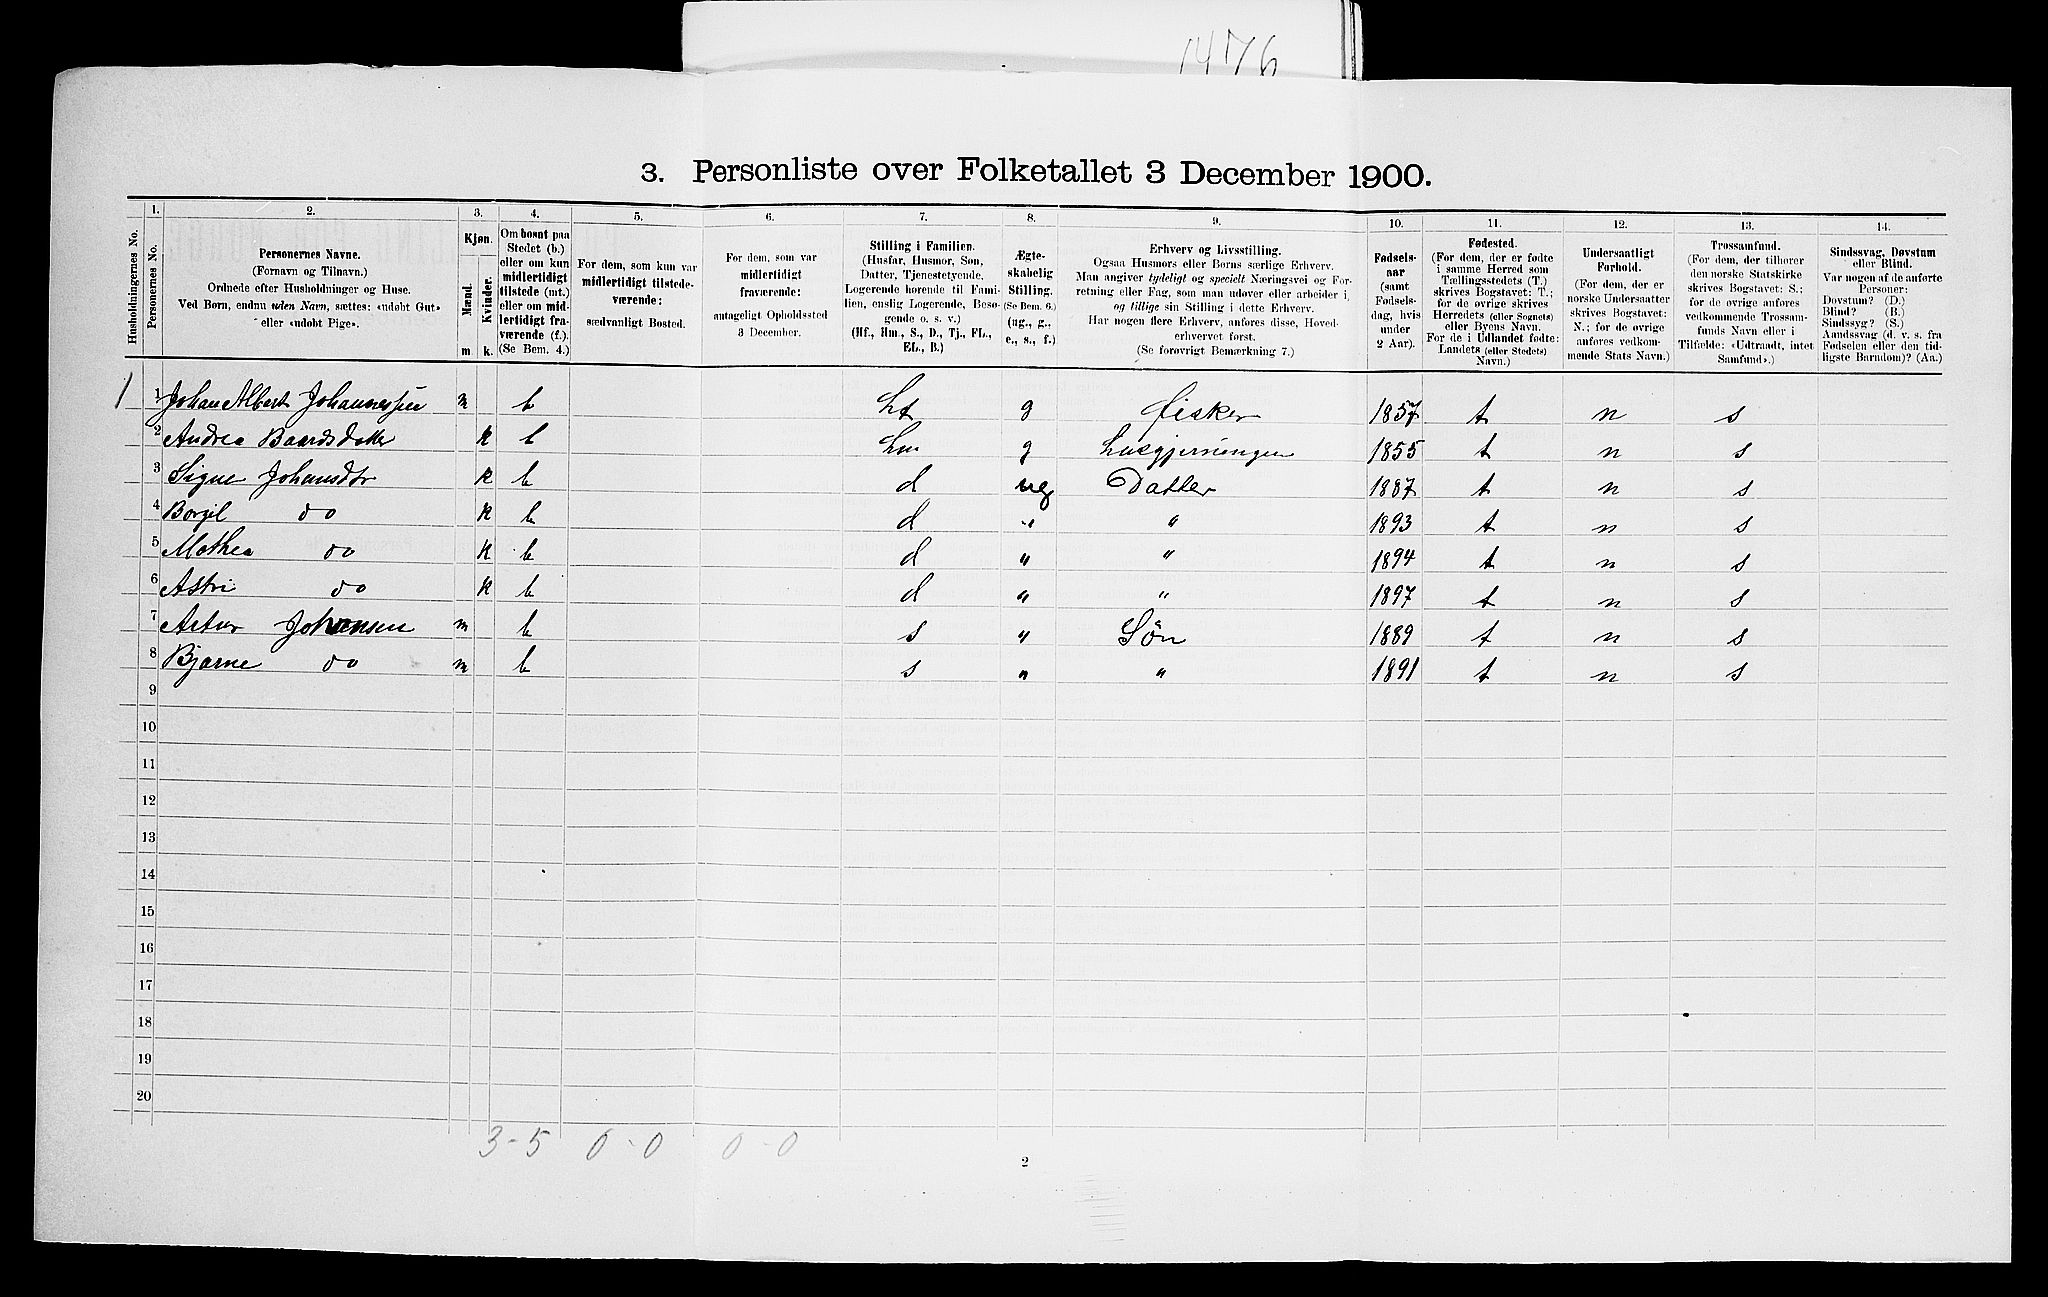 1476
3. Personliste over Folketallet 3 December 1900.
1. 2. 3. 4. 5. 6. 7. 8. 9. 10. 11. 12. 13. 14.
Husholdningernes No.
Personernes No.
Personernes Navne.
(Fornavn og Tilnavn.)
Ordnede efter Husholdninger og Huse.
Ved Børn, endnu uden Navn, sættes: «udøbt Gut»
eller «udøbt Pige».
Kjøn.
Mænd.
Kvinder.
m. k.
Om bosat paa
Stedet (b.)
eller om kun
midlertidigt
tilstede (mt.)
eller om mid-
lertidigt fra-
værende (f.).
(Se Bem. 4.)
For dem, som kun var
midlertidigt tilstede-
værende:
sædvanligt Bosted.
For dem, som var
midlertidigt
fraværende:
antageligt Opholdssted
3 December.
Stilling i Familien.
(Husfar, Husmor, Søn,
Datter, Tjenestetyende,
Logerende hørende til Fami-
lien, enslig Logerende, Besø-
gende o. s. v.)
(Hf., Hm., S., D., Tj., FL.,
EL., B.)
Ægte-
skabelig
Stilling.
(Se Bem. 6.)
(ug., g.,
e., s., f.)
Erhverv og Livsstilling.
Ogsaa Husmors eller Børns særlige Erhverv.
Man angiver tydeligt og specielt Næringsvei og For-
retning eller Fag, som man udøver eller arbeider i,
og tillige sin Stilling i dette Erhverv.
Har nogen flere Erhverv, anføres disse, Hoved-
erhvervet først.
(Se forøvrigt Bemærkning 7.)
Fødsels-
aar
(samt
Fødsels-
dag, hvis
under
2 Aar).
Fødested.
(For dem, der er fødte
i samme Herred som
Tællingsstedets (T.)
skrives Bogstavet: T.;
for de øvrige skrives
Herredets (eller Sognets)
eller Byens Navn.
For de i Udlandet fødte:
Landets (eller Stedets)
Navn.)
Undersaatligt
Forhold.
(For dem, der er
norske Undersaatter
skrives Bogstavet:
N.; for de øvrige
anføres vedkom-
mende Stats Navn.)
Trossamfund.
(For dem, der tilhører
den norske Statskirke
skrives Bogstavet: S.;
for de øvrige anføres
vedkommende Trossam-
funds Navn eller i
Tilfælde: «Udtraadt, intet
Samfund».)
Sindssvag, Døvstum
eller Blind.
Var nogen af de anførte
Personer:
Døvstum? (D.)
Blind? (B.)
Sindssyg? (S.)
Aandssvag (d. v. s. fra
Fødselen eller den tid-
ligste Barndom)? (Aa.)
1 1 Johan Albert Johannessen m b hf g fisker 1857 t n s
2 Andrea Baardsdatter k b hm g husgjerningen 1855 t n s
3 Signe Johansdtr k b d ug Datter 1887 t n s
4 Borgil do k b d " " 1893 t n s
5 Mathea do k b d " " 1894 t n s
6 Astri do k b d " " 1897 t n s
7 Artur Johansen m b s " Søn 1889 t n s
8 Bjarne do m b s " " 1891 t n s
9
10
11
12
13
14
15
16
17
18
19
20
3-5 0-0 0-0
2